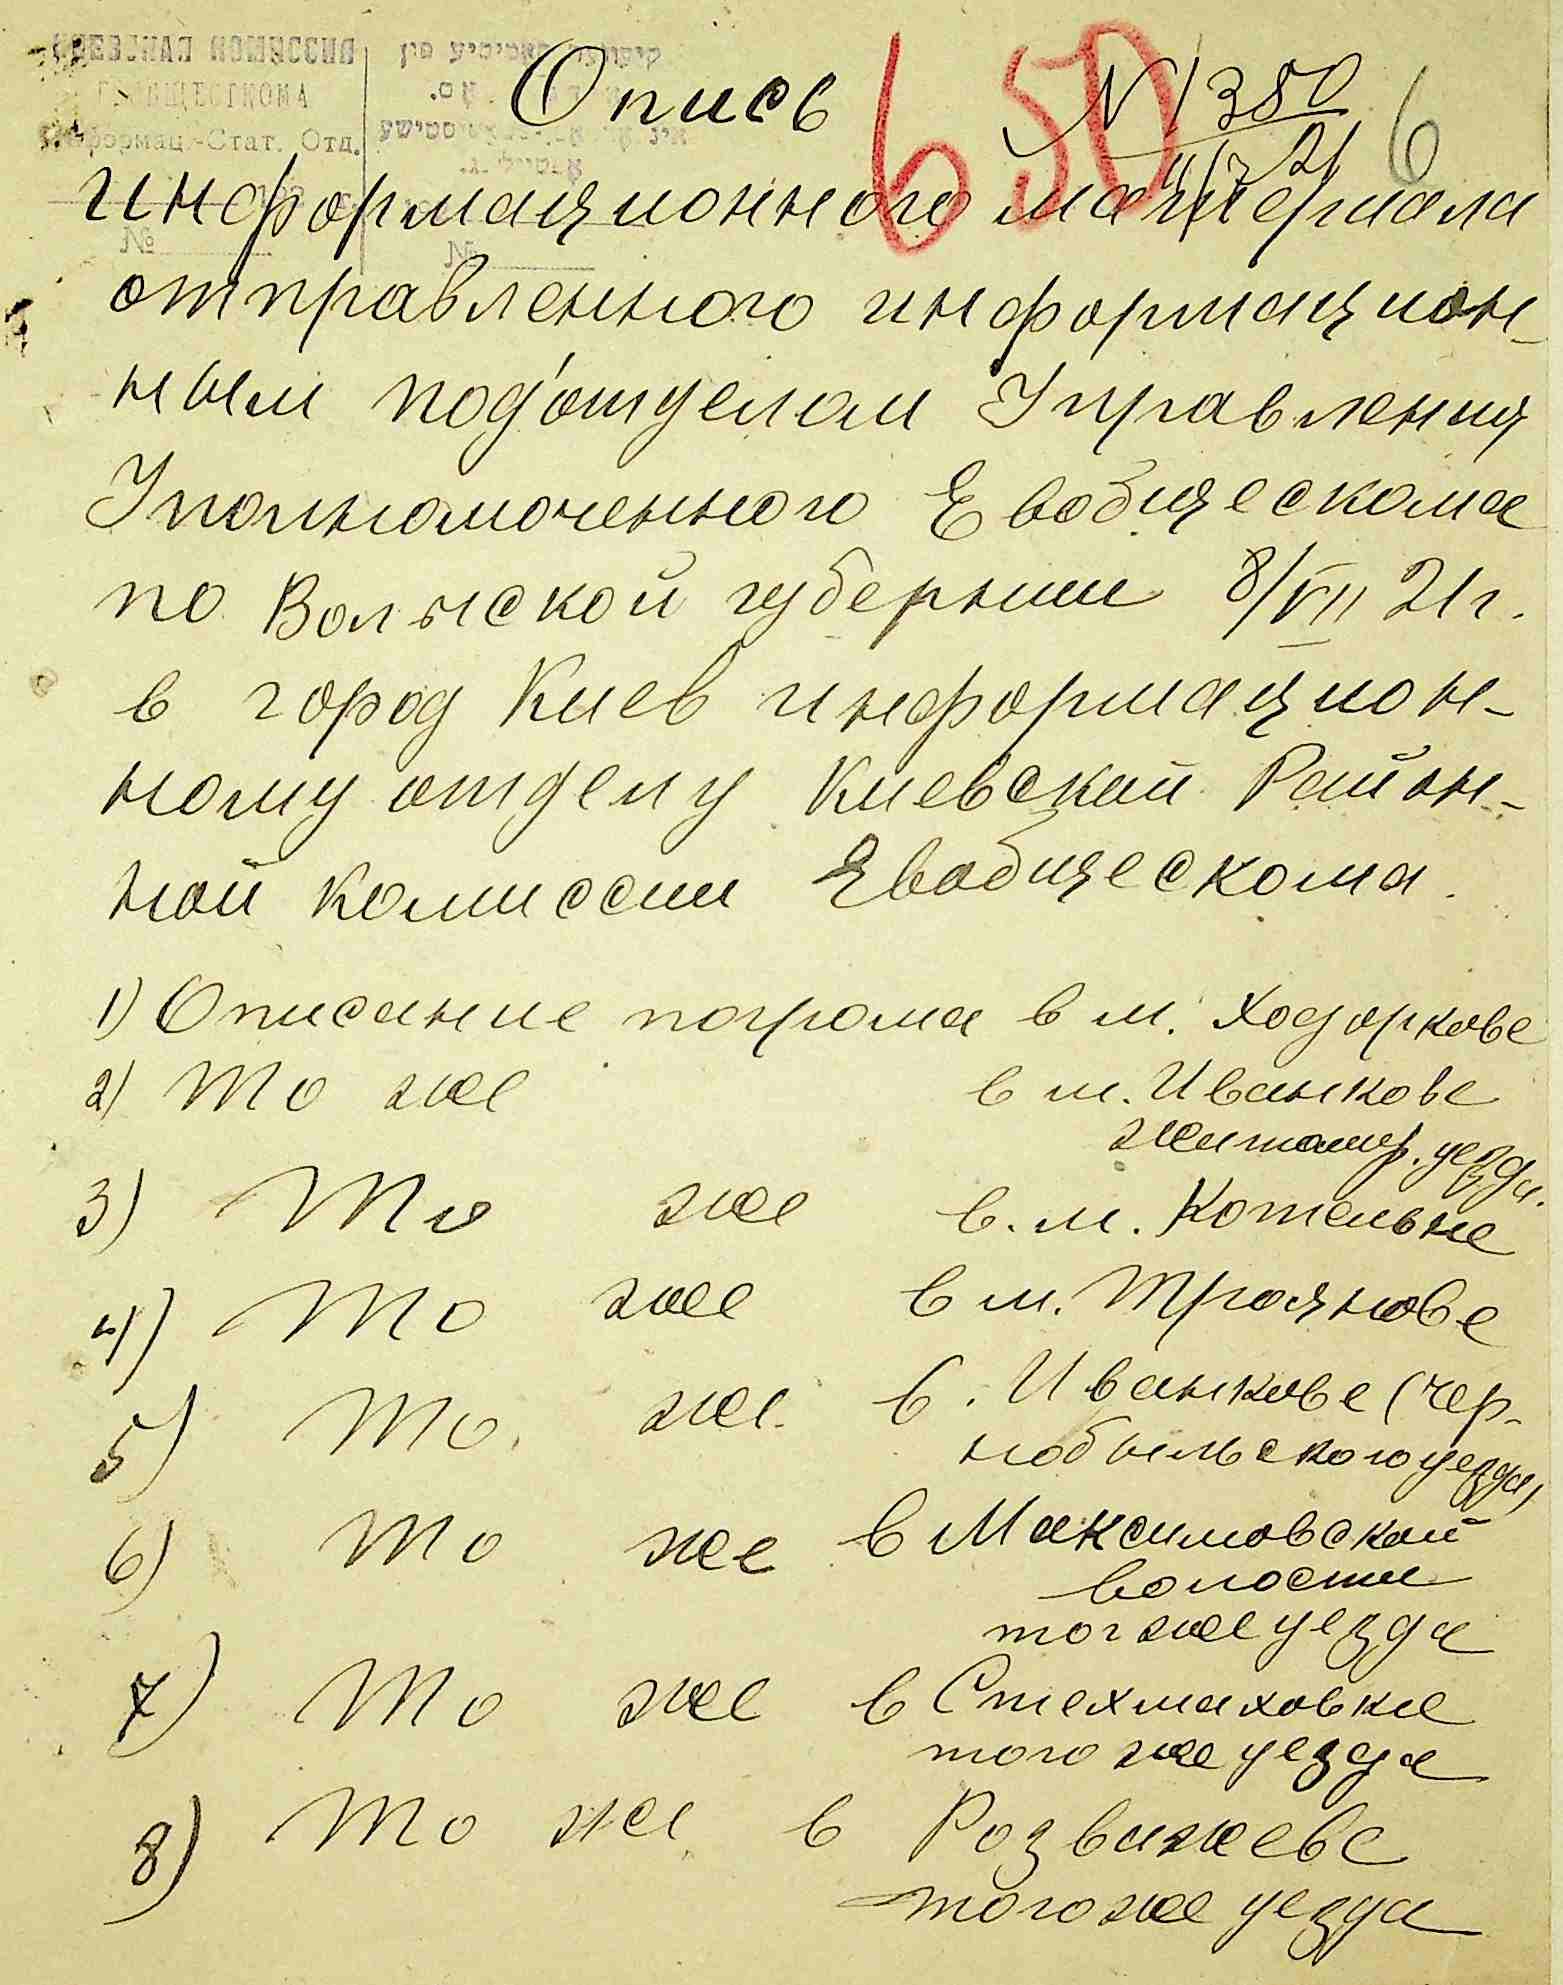 КИЕВСКАЯ КОМИССИЯ
ЕВОБЩЕСТКОМА
Информац.-Стат. Отд.
№
№
Опись
650
№ 1380
21
6
информационного материала
отправленного информацион-
ным под'отделом Управления
Уполномоченного Евобщескома
по Волынской губернии 8/VII 21 г.
в город Киев информацион-
ному отделу Киевской Район-
ной комиссии Евобщескома.
1) Описание погрома в м. Ходоркове
2) То же в м. Иванкове
житомир. уезда.
3) То же в. м. Котельне
4) То же в м. Троянове
5) То же в. Иванкове (Чер-
нобыльского уезда)
6) То же в Максимовской
волости
тог же уезда
7) То же в Стехмаховке
того же уезда
8) То же в Розважеве
того же уезда